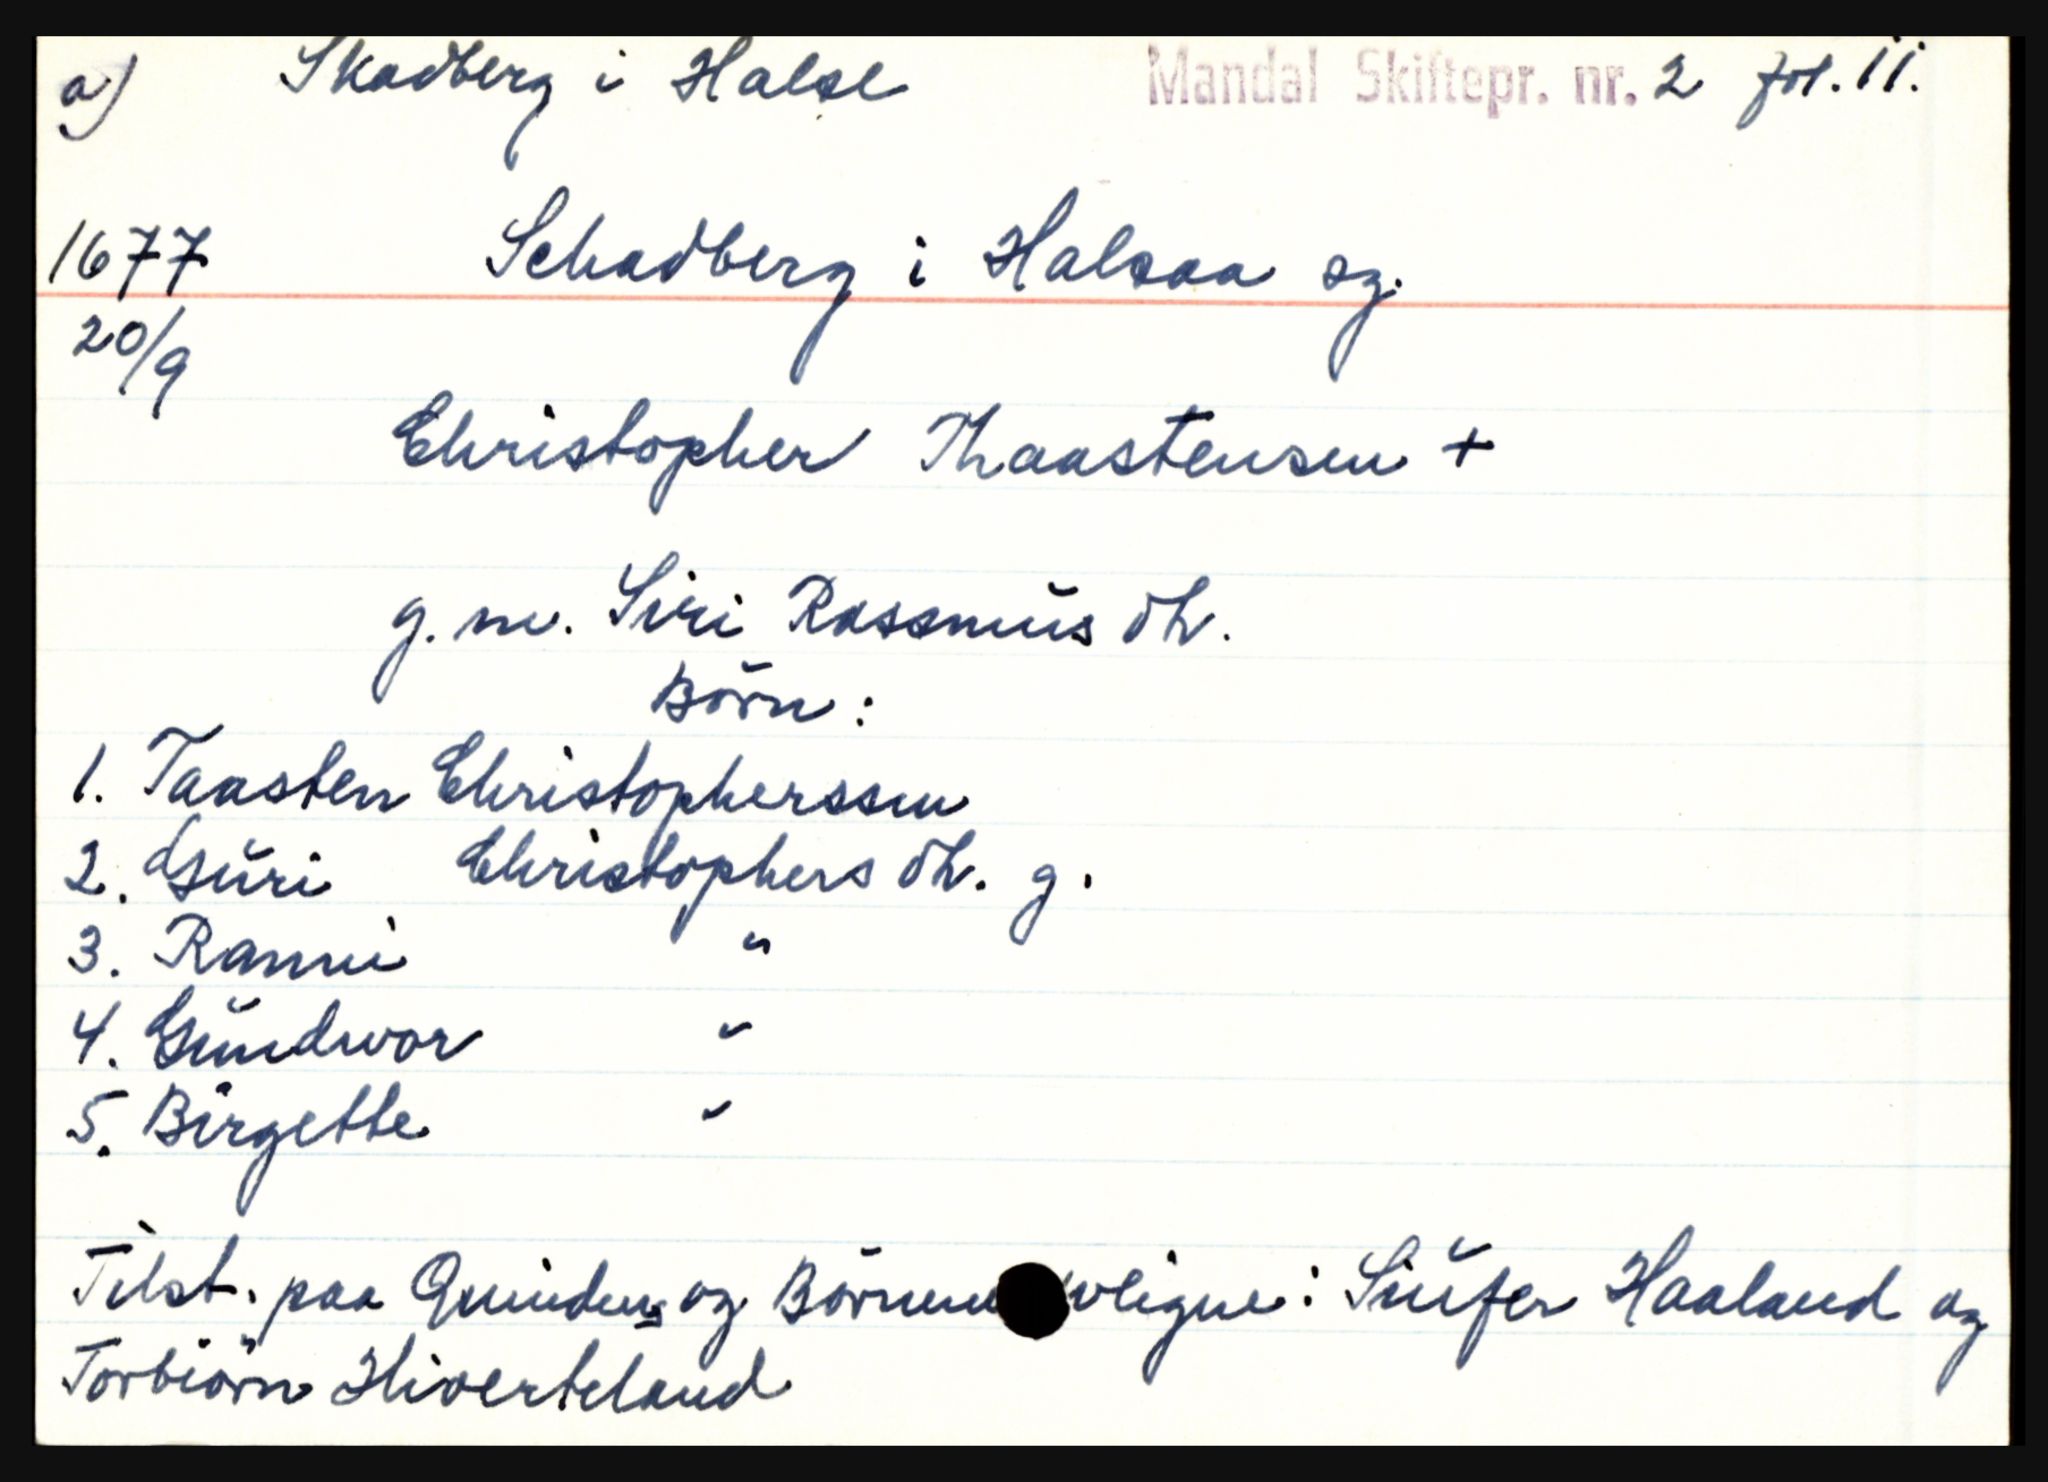 a) Skadberg i Halse Mandal Skiftepr. nr. 2 fol. 11.
1677 Schadberg i Halsaa sg.
20/9
Christopher Thaastensen +
g. m. Siri Rassmus dh.
Börn:
1. Taasten Christopherssen
2. Guri Christophers dh. g.
3. Ranni "
4. Gundwor "
5. Birgette "
Tilst. paa Quindens og Börnenes weigne: Siufer Haaland og
Torbiörn Hiverteland